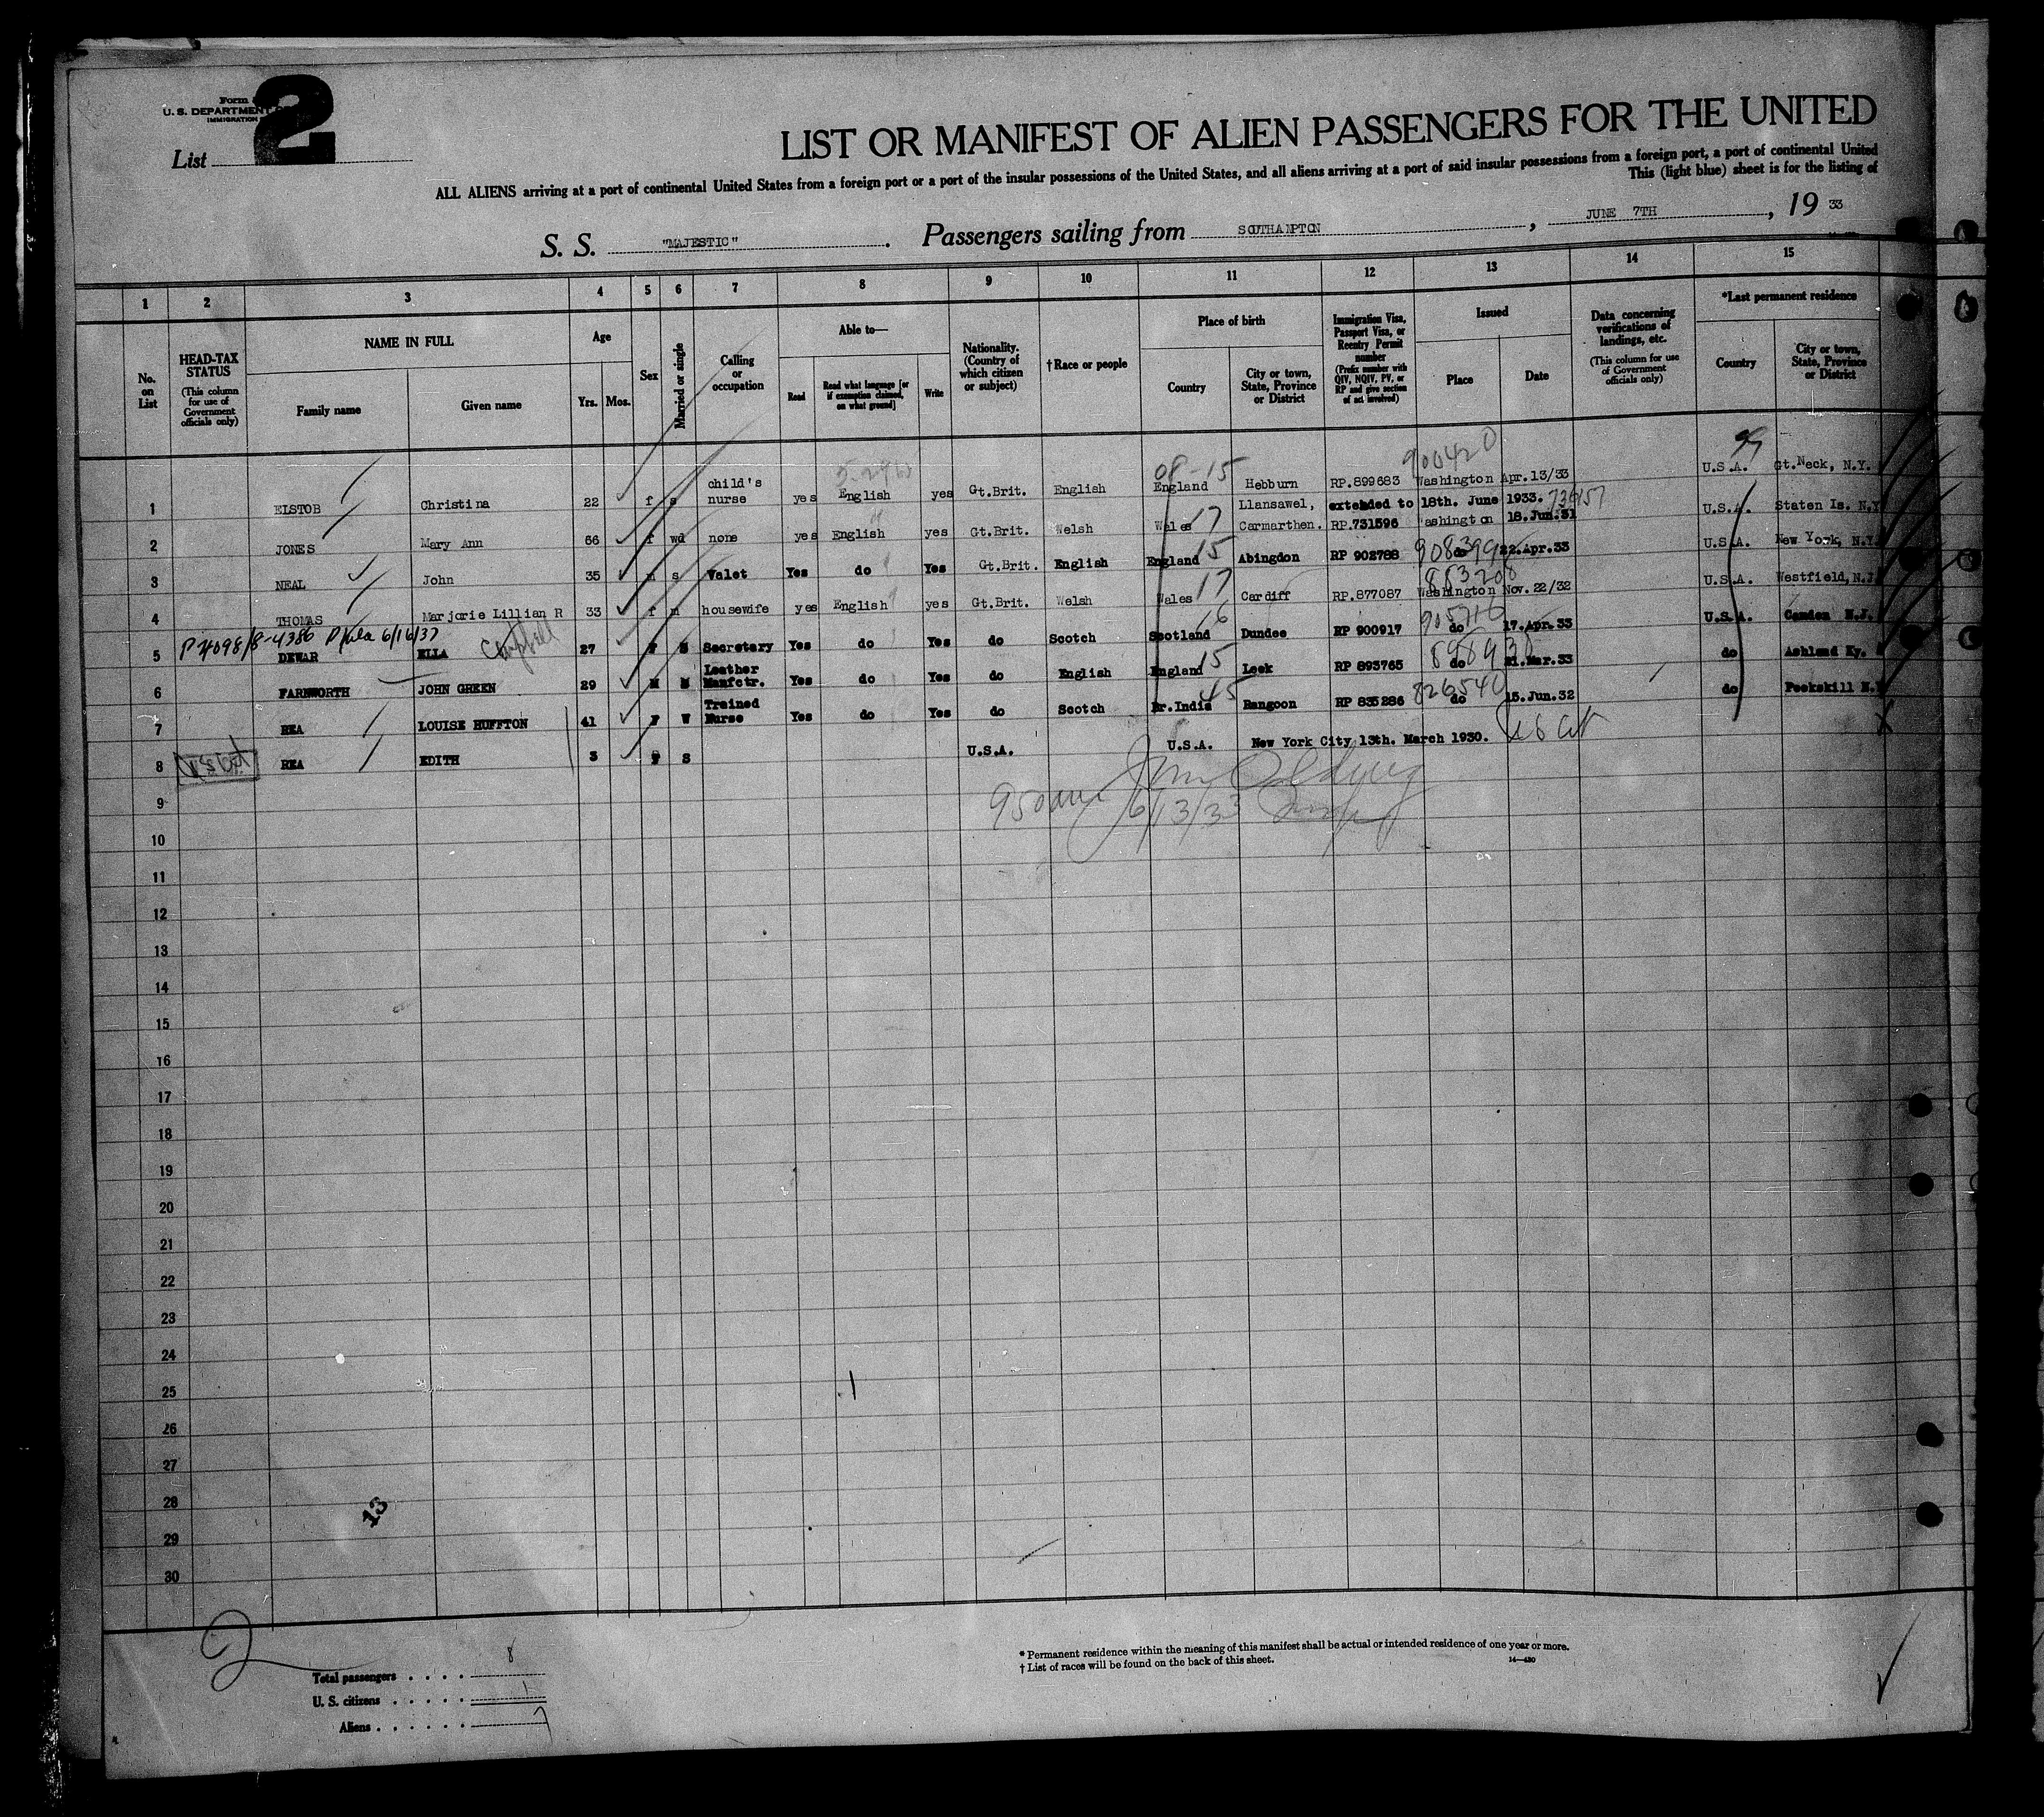 Form
U. S. DEPARTMENT
IMMIGRATION
2
List
LIST OR MANIFEST OF ALIEN PASSENGERS FOR THE UNITED
ALL ALIENS arriving at a port of continental United States from a foreign port or a port of the insular possessions of the United States, and all aliens arriving at a port of said insular possessions from a foreign port, a port of continental United
This (light blue) sheet is for the listing of
S. S. "MAJESTIC". Passengers sailing from SOUTHAMPTON, JUNE 7TH, 19 33
1 2 3 4 5 6 7 8 9 10 11 12 13 14 15
No. on List
HEAD-TAX STATUS
(This column for use of Government officials only)
NAME IN FULL
Family name
Given name
Age
Yrs. Mos.
Sex
Married or single
Calling or occupation
Able to—
Read
Read what language [or if exemption claimed, on what ground]
Write
Nationality. (Country of which citizen or subject)
†Race or people
Place of birth
Country
City or town, State, Province or District
Immigration Visa, Passport Visa, or Reentry Permit number
(Prefix number with QIV, NQIV, PV, or RP and give section of act involved)
Issued
Place
Date
Data concerning verifications of landings, etc.
(This column for use of Government officials only)
*Last permanent residence
Country
City or town, State, Province or District
900420
08-15
1 ELSTOB Christina 22 f s child's nurse yes English yes Gt.Brit. English England Hebburn RP.899683 Washington Apr.13/33 U.S.A. Gt.Neck, N.Y.
extended to 18th. June 1933.
2 JONES Mary Ann 66 f wd none yes English yes Gt.Brit. Welsh Wales 17 Llansawel, Carmarthen. RP.731596 Washington 18.Jun.31 U.S.A. Staten Is. N.Y
3 NEAL John 35 m s Valet Yes do Yes Gt.Brit. English England 15 Abingdon RP 902788 do 22.Apr.33 U.S.A. New York, N.Y.
4 THOMAS Marjorie Lillian R 33 f m housewife yes English yes Gt.Brit. Welsh Wales 17 Cardiff RP.877087 Washington Nov.22/32 U.S.A. Westfield, N.J.
6/16/37
5 DEWAR ELLA Campbell 27 F S Secretary Yes do Yes do Scotch Scotland 16 Dundee RP 900917 do 17.Apr.33 U.S.A. Camden N.J.
6 FARNWORTH JOHN GREEN 29 M M Leather Manfctr. Yes do Yes do English England 15 Leek RP 893765 do 21.Mar.33 do Ashland Ky.
826540
7 REA LOUISE HUFFTON 41 F W Trained Nurse Yes do Yes do Scotch Br.India 45 Rangoon RP 835286 do 15.Jun.32 do Peekskill N.Y
8 REA EDITH 3 F S U.S.A. U.S.A. New York City 13th. March 1930.
9
6/13/33
10
11
12
13
14
15
16
17
18
19
20
21
22
23
24
25
26
27
28
13
29
30
2
Total passengers . . . . 8
U. S. citizens . . . . . 1
Aliens . . . . . . 7
* Permanent residence within the meaning of this manifest shall be actual or intended residence of one year or more.
† List of races will be found on the back of this sheet.
14—430